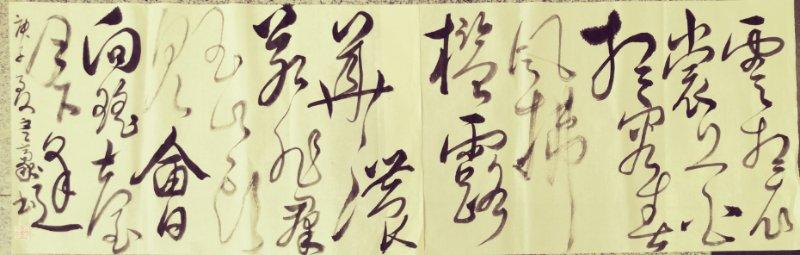 雲想衣
裳花
想容春
風拂
檻露
華濃
若非群
玉山頭
見會
向瑤臺
月下逢
庚子夏 書